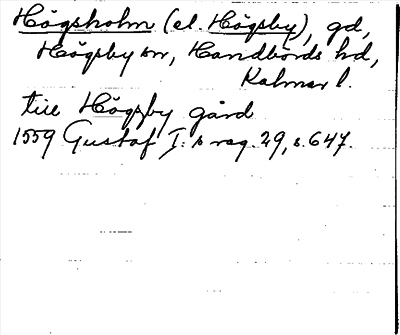 Högsholm (el. Högsby), gd,
Högsby sn, Handbörds hd,
Kalmar l.
till Högsby gård
1559 Gustaf I:s reg. 29, s. 647.